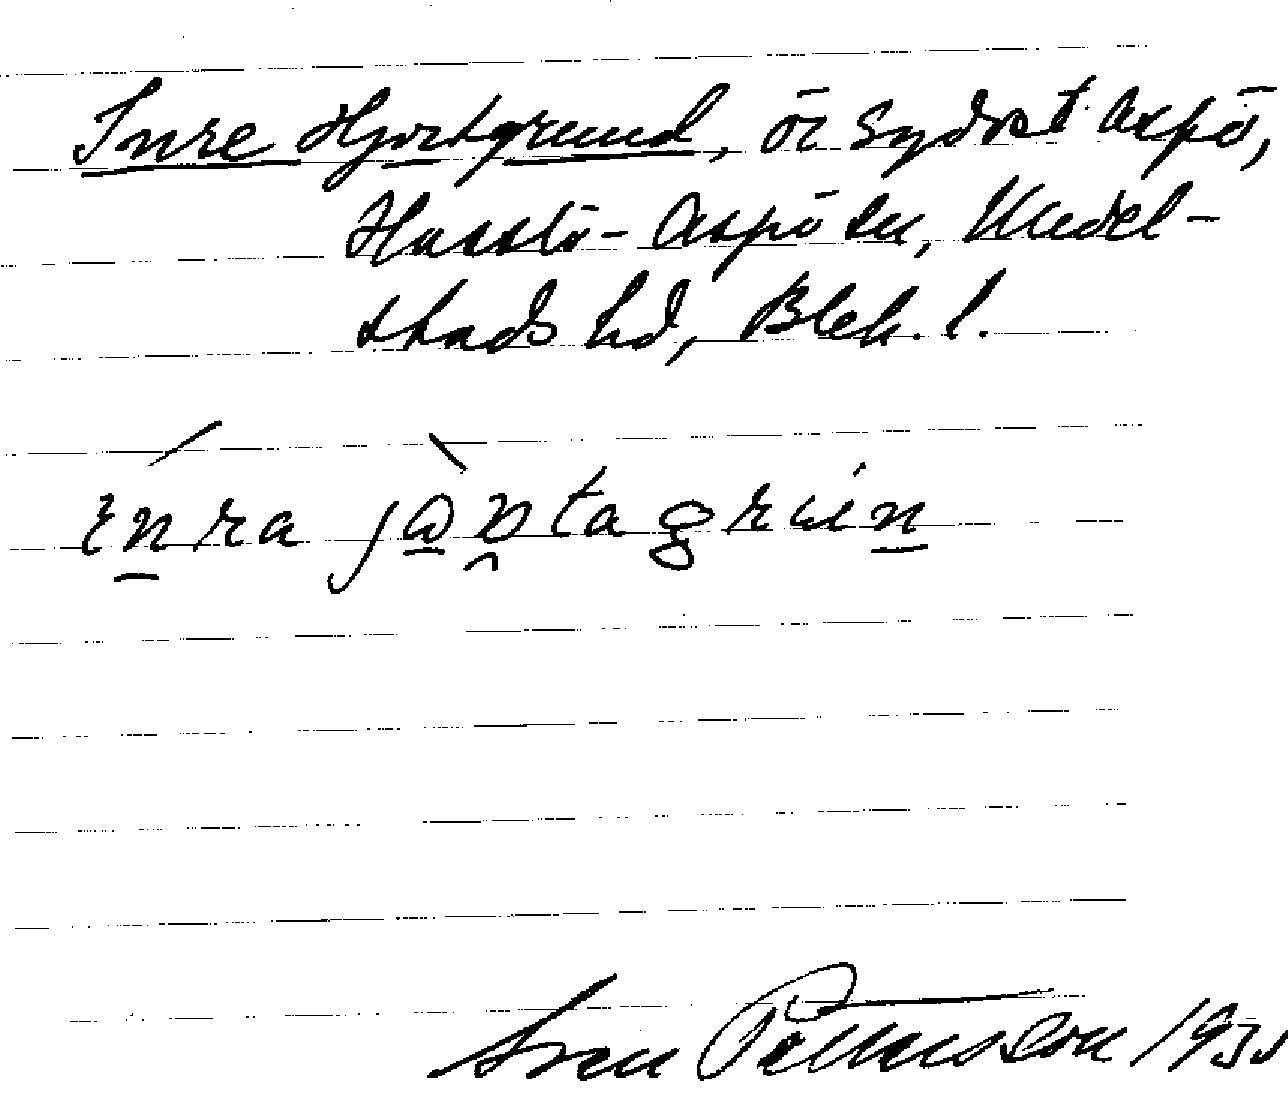 Inre Hjortgrund, ö i Sydost Aspö,
Hasslö-Aspö sn, Medel-
stads hd, Blek. l.
ɛnra jɷɒtagrɯn
Sven Pettersson 193